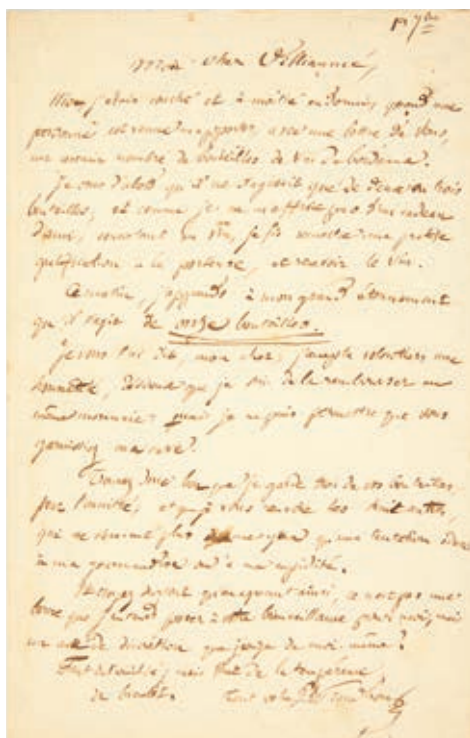 Mon cher Villiaumé,
Hier, j'étais couché et à moitié endormi, quand une
personne est venue m'apporter, avec une lettre de vous,
un certain nombre de bouteilles de vin de bordeaux.
Je crus d'abord qu'il ne s'agissait que de deux ou trois
bouteilles; et comme je ne m'offense pas d'un cadeau
d'ami, consistant en vin, je fis remettre une petite
gratification à la porteuse, et recevoir le vin.
Ce matin, j'apprends à mon grand étonnement
qu'il s'agit de onze bouteilles.
Je vous l'ai dit, mon cher, j'accepte volontiers une
honnêteté, résolu que je suis de la rembourser en
même monnaie: mais je ne puis permettre que vous
garnissiez ma cave.
Trouvez donc bon que je garde trois de vos bouteilles,
pour l'amitié, et que je vous rende les huit autres,
qui ne seraient plus qu'une tentation
à ma gourmandise ou à ma cupidité.
croyez qu'en agissant ainsi, ce n'est pas une
borne que j'entends poser à votre bienveillance pour moi, mais
un acte de discrétion que j'exige de moi-même.
de la
Tout